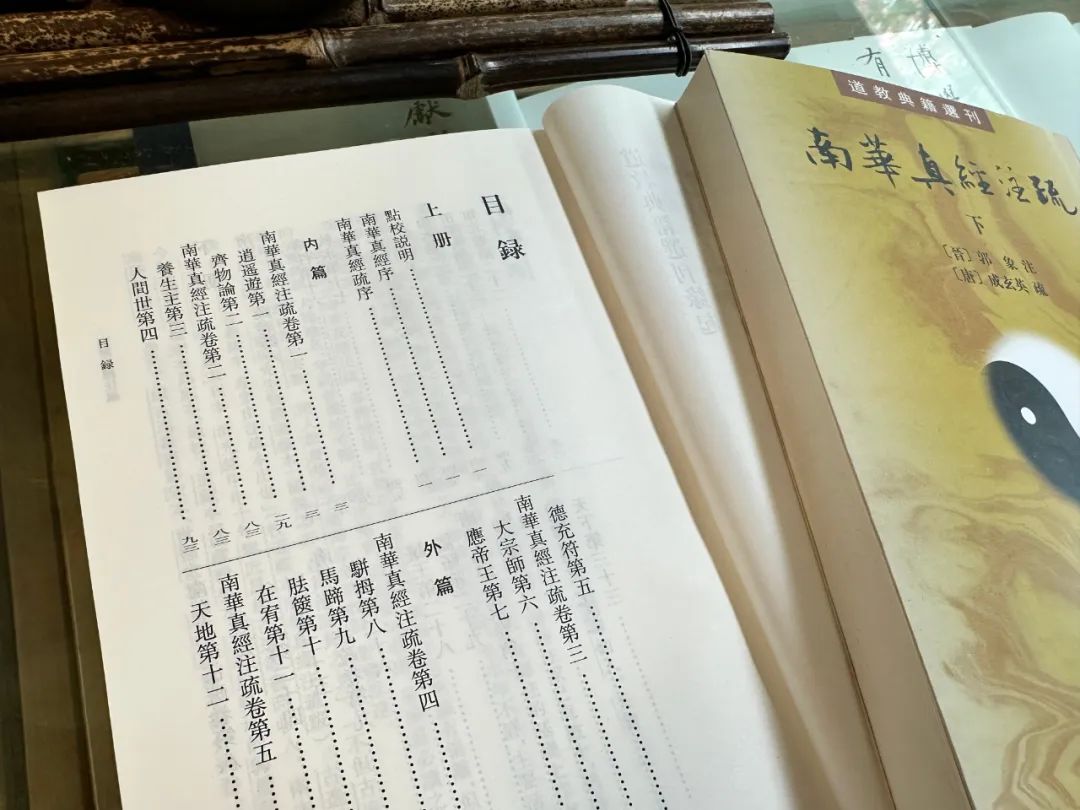 目録
上册
點校説明 一
南華真經序 一
南華真經疏序 一
内篇
南華真經注疏卷第一
逍遥遊第一
齊物論第二 二九
南華真經注疏卷第二
養生主第三
人間世第四
德充符第五
南華真經注疏卷第三
大宗師第六
應帝王第七
外篇
南華真經注疏卷第四
駢拇第八
馬蹄第九
胠篋第十
在宥第十一
南華真經注疏卷第五
天地第十二
目録
道教典籍選刊
南華真經注疏
下
〔晉〕郭象注
〔唐〕成玄英疏
有
博
獻